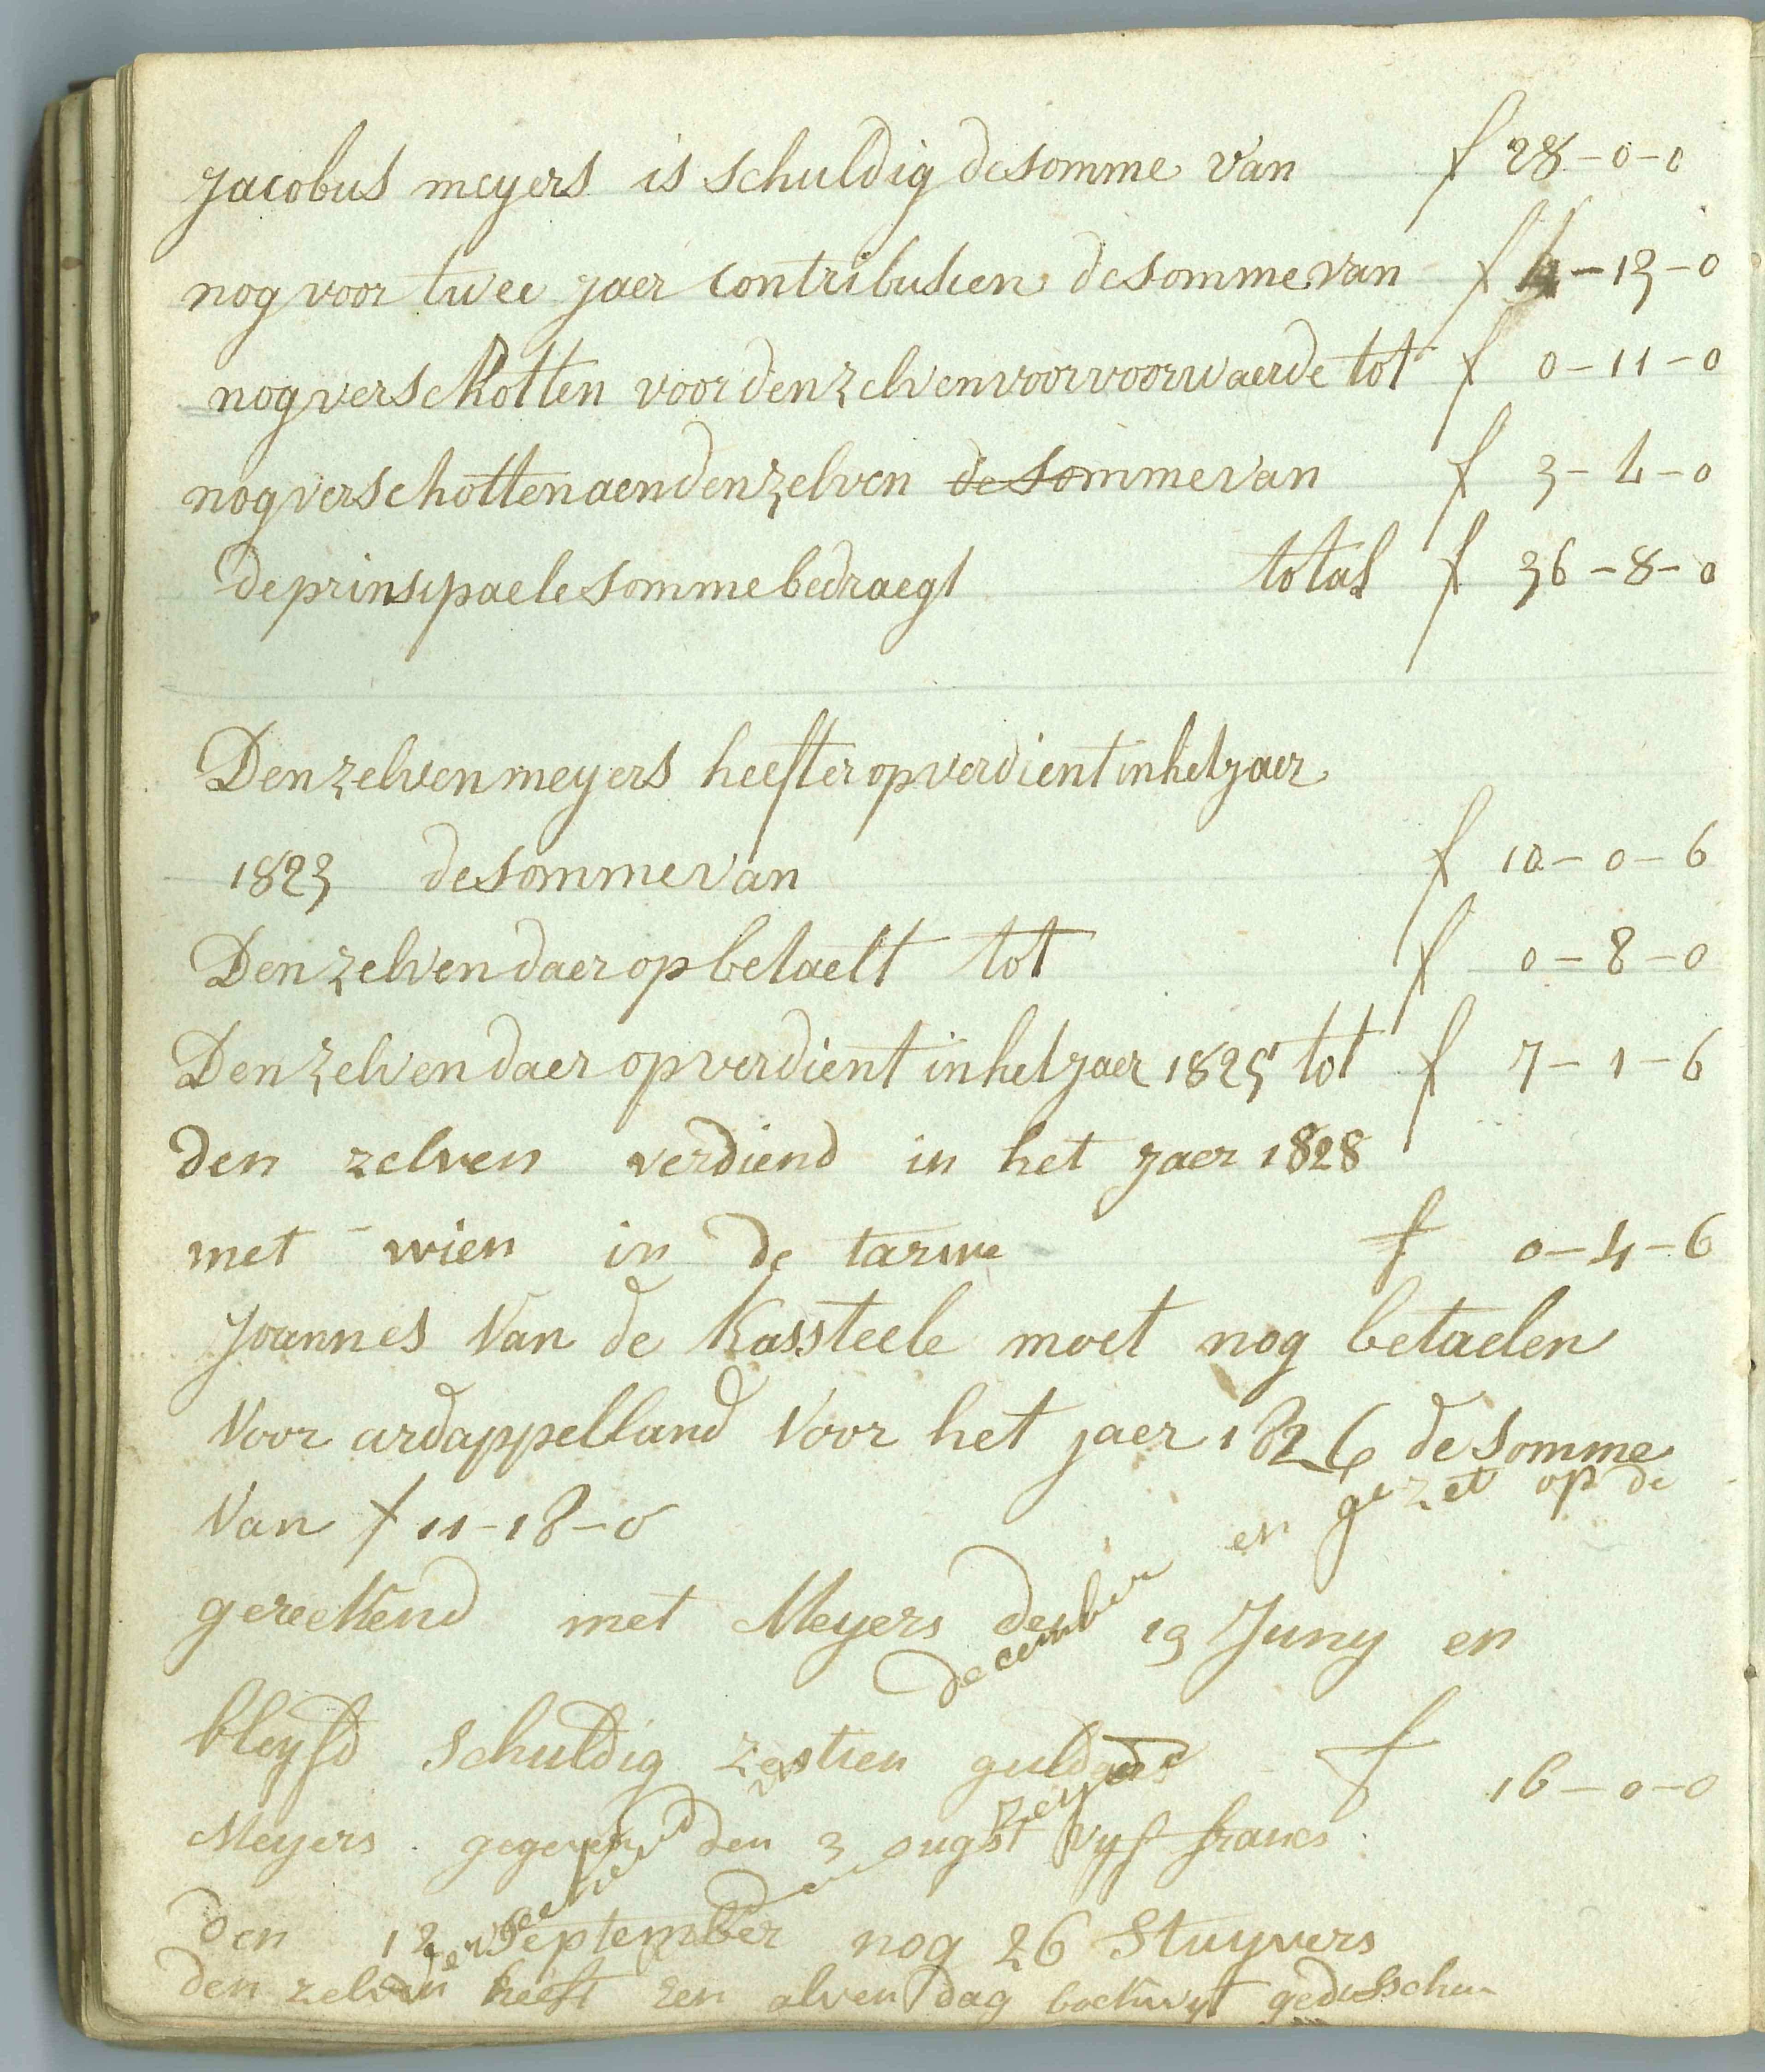 Jacobus meyers is schuldig de somme van f 28-0-0
nog voor twee jaer contribusien de somme van f 4-13-0
nog verschotten voor den zelven voor voorwaerde tot f 0-11-0
nog verschotten aen den zelven de somme van f 3-4-0
de prinsipaele somme bedraegt total f 36-8-0
Den zelven meyers heefter op verdient in het jaer
1823 de somme van f 10-0-6
Den zelven daer op betaelt tot f 0-8-0
Den zelven daer op verdient in het jaer 1825 tot f 7-1-6
den zelven verdiend in het jaer 1828
met wien in de tarwe f 0-4-6
Joannes Van de Kassteele moet nog betaelen
Voor ardappelland Voor het jaer 1826 de somme
Van f 11-18-0
gereekend met Meyers den 19 Juny en
bleyfd schuldig zestien guldens f 16-0-0
Meyers gegeven den 3 ougst vyf francs
den 12 September nog 26 Stuyvers
den zelven heeft een alven dag boekwyt gedosschen
december en gezet op de